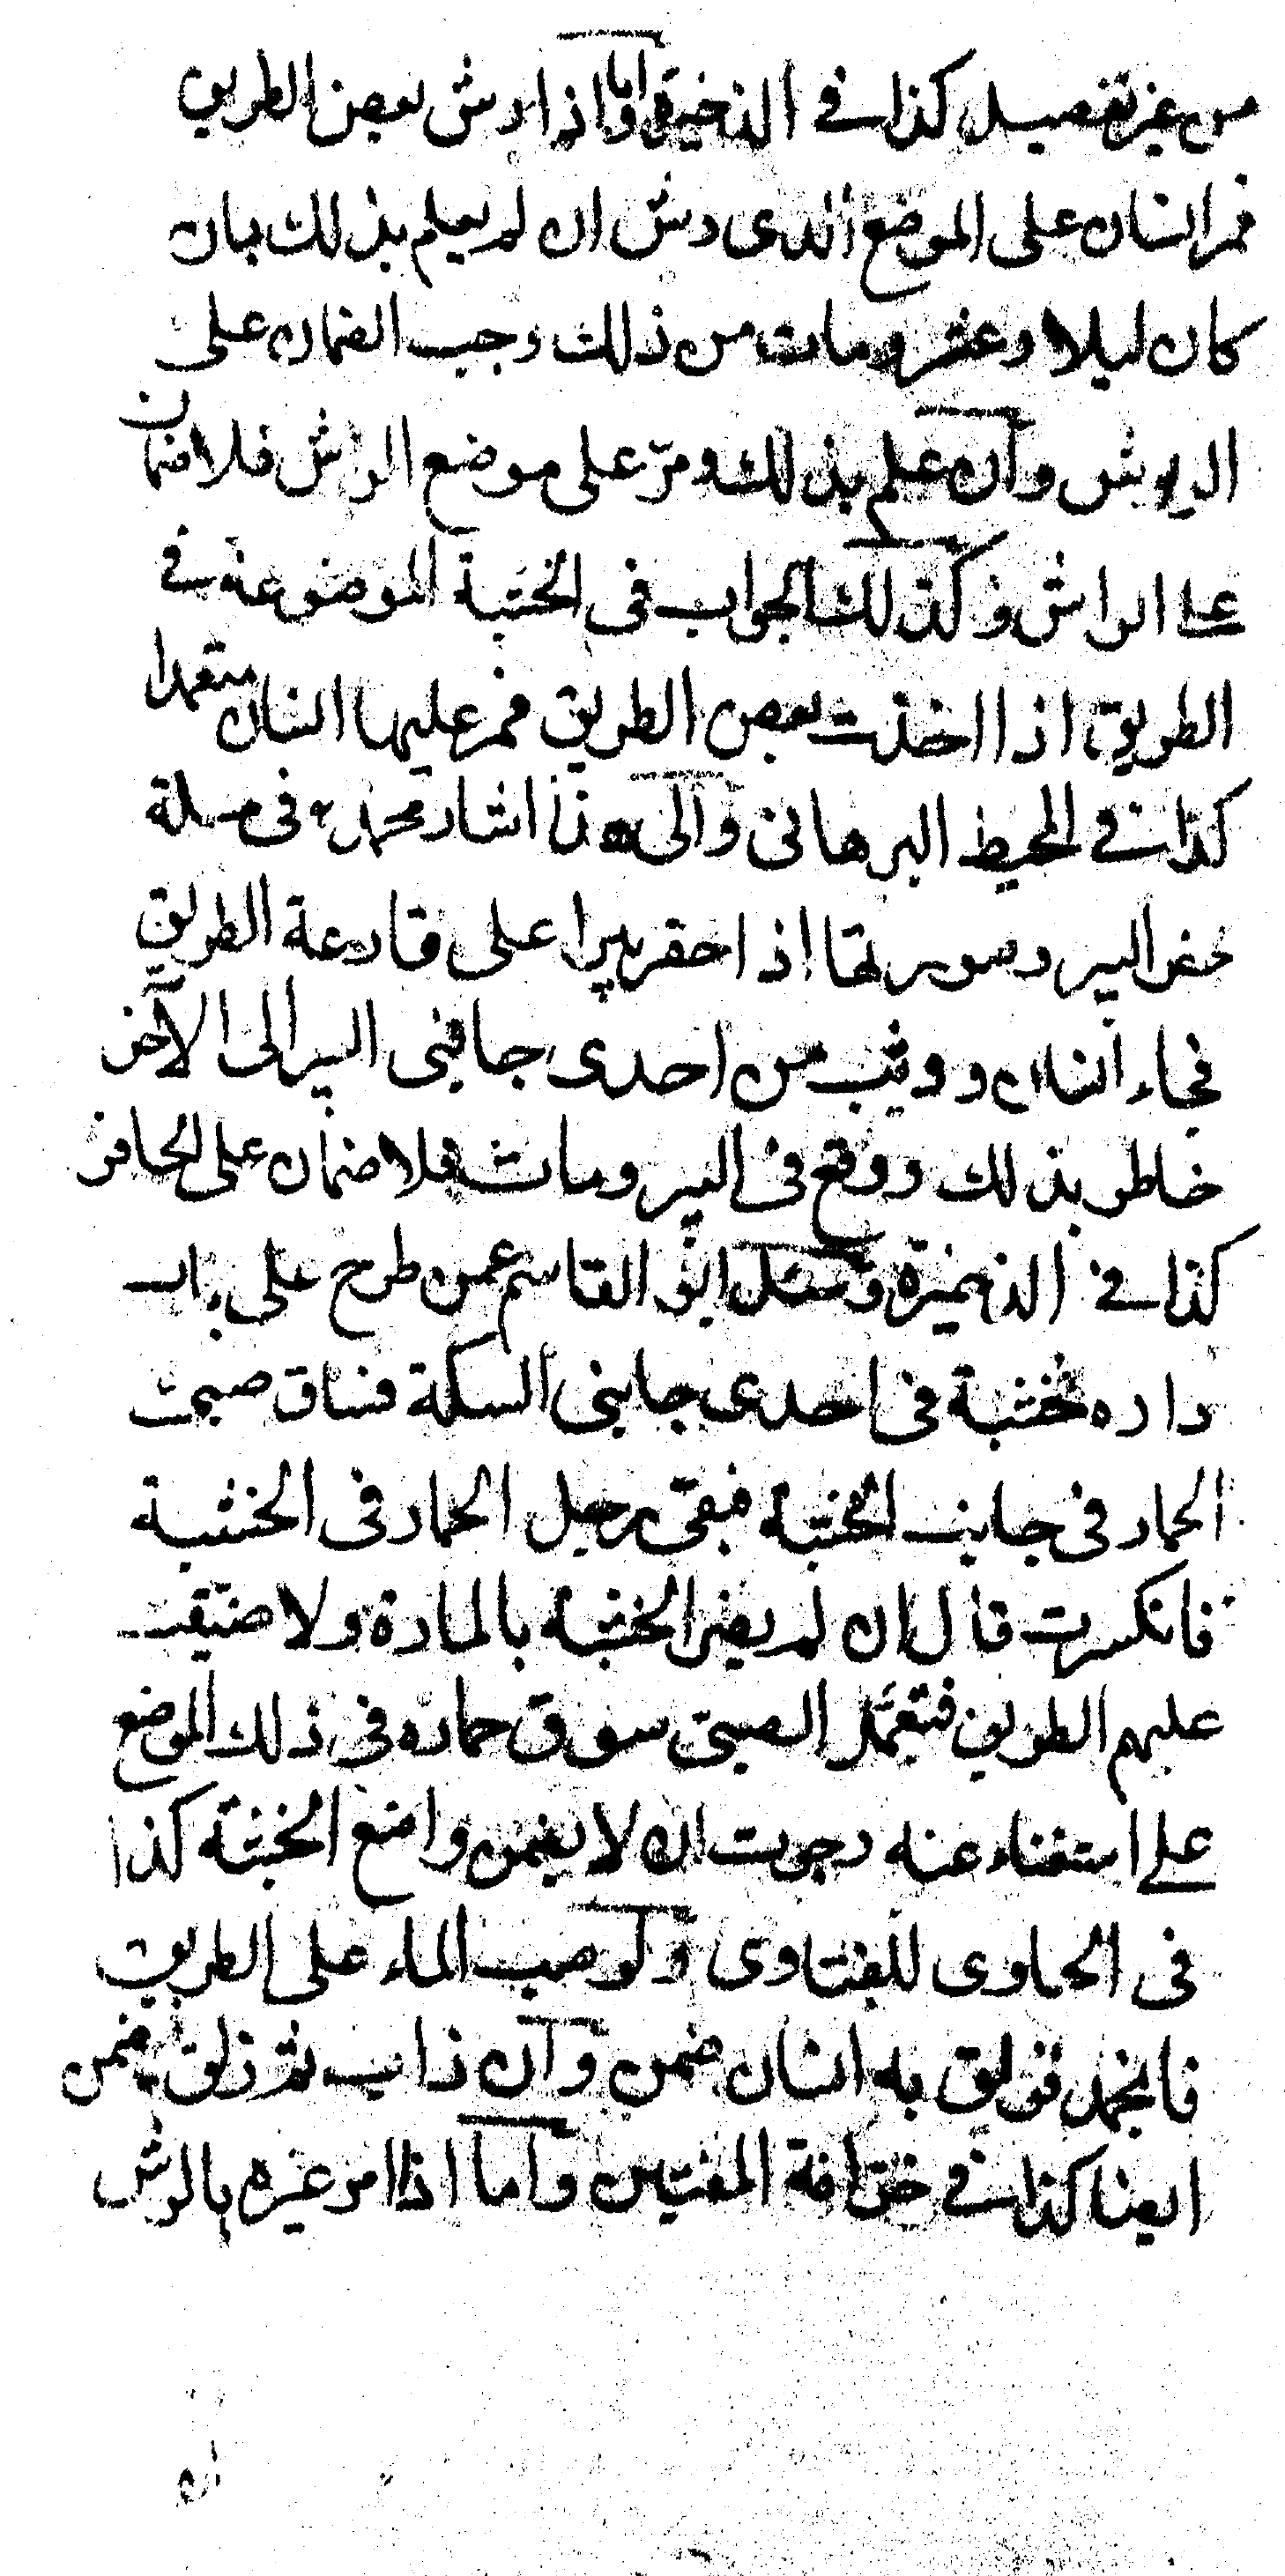 من غير تفصيل كذا في الذخيرة واما اذا رش بعض الطريق
فمر انسان على الموضع الذى رش ان لم يعلم بذلك بان
كان ليلا وعثر ومات من ذلك وجب الضمان على
الراش وان علم بذلك ومرّ على موضع الراش فلا ضمان
على الراش وكذلك الجواب فى الخشبة الموضوعة في
الطريق اذا اخذت بعض الطريق فمر عليها انسان متعمدا
كذا في المحيط البرهانى والى هذا اشار محمد فى مسلة
حفر البير وصورتها اذا حفر بيرا على قارعة الطريق
فجاء انسان ووثب من احدى جانبى البير الى الآخر
خاطر بذلك ووقع فى البير ومات فلا ضمان على الحافر
كذا في الذخيرة وسئل ابو القاسم عمن طرح على باب
داره خشبة فى احدى جانبى السكة فساق صبى
الحمار فى جانب الخشبة فبقى رجل الحمار فى الخشبة
فانكسرت قال ان لم يضر الخشبة بالمارة ولا ضيقت
عليهم الطريق فتعمّد الصبىّ سوق حماره فى ذلك الموضع
على استغناء عنه رجوت ان لا يضمن واضع الخشبة كذا
فى الحاوى للفتاوى ولو صب الماء على الطريق
فانجمد فزلق به انسان ضمن وان ذاب ثم زلق يضمن
ايضا كذا في خزانة المفتيين واما اذا امر غيره بالرش